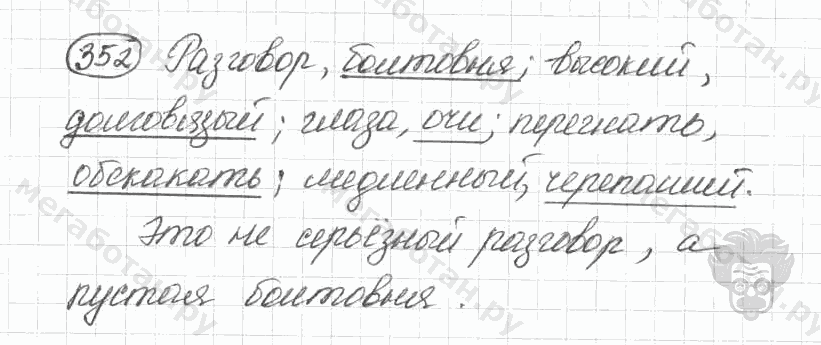 352 Разговор, болтовня; высокий,
долговязый; глаза, очи; перегнать,
обскакать; медленный, черепаший.
Это не серьёзный разговор, а
пустая болтовня.
мегаботан.ру